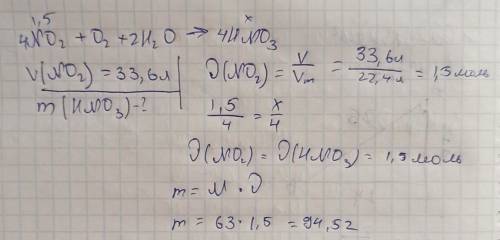 1,5 x
4NO2 + O2 + 2H2O → 4HNO3
V(NO2) = 33,6л
m(HNO3)-?
𝜈(NO2) = V/Vm = 33,6л/22,4л = 1,5 моль
1,5/4 = x/4
𝜈(NO2) = 𝜈(HNO3) = 1,5 моль
m = M · 𝜈
m = 63 · 1,5 = 94,5г